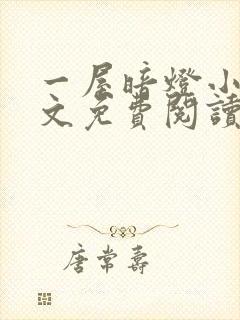 一屋暗燈小
文免費閱讀
唐常壽